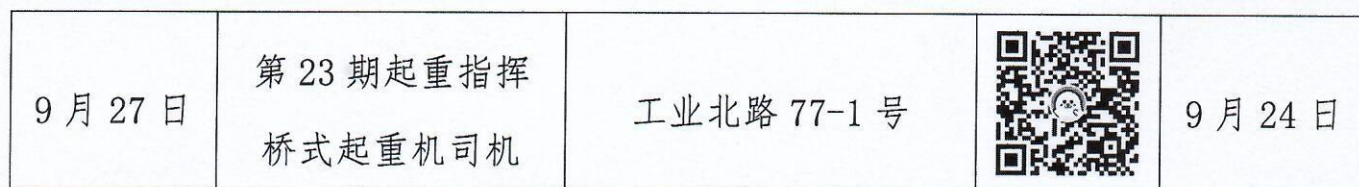 9月27日
第23期起重指挥
桥式起重机司机
工业北路77-1号
9月24日